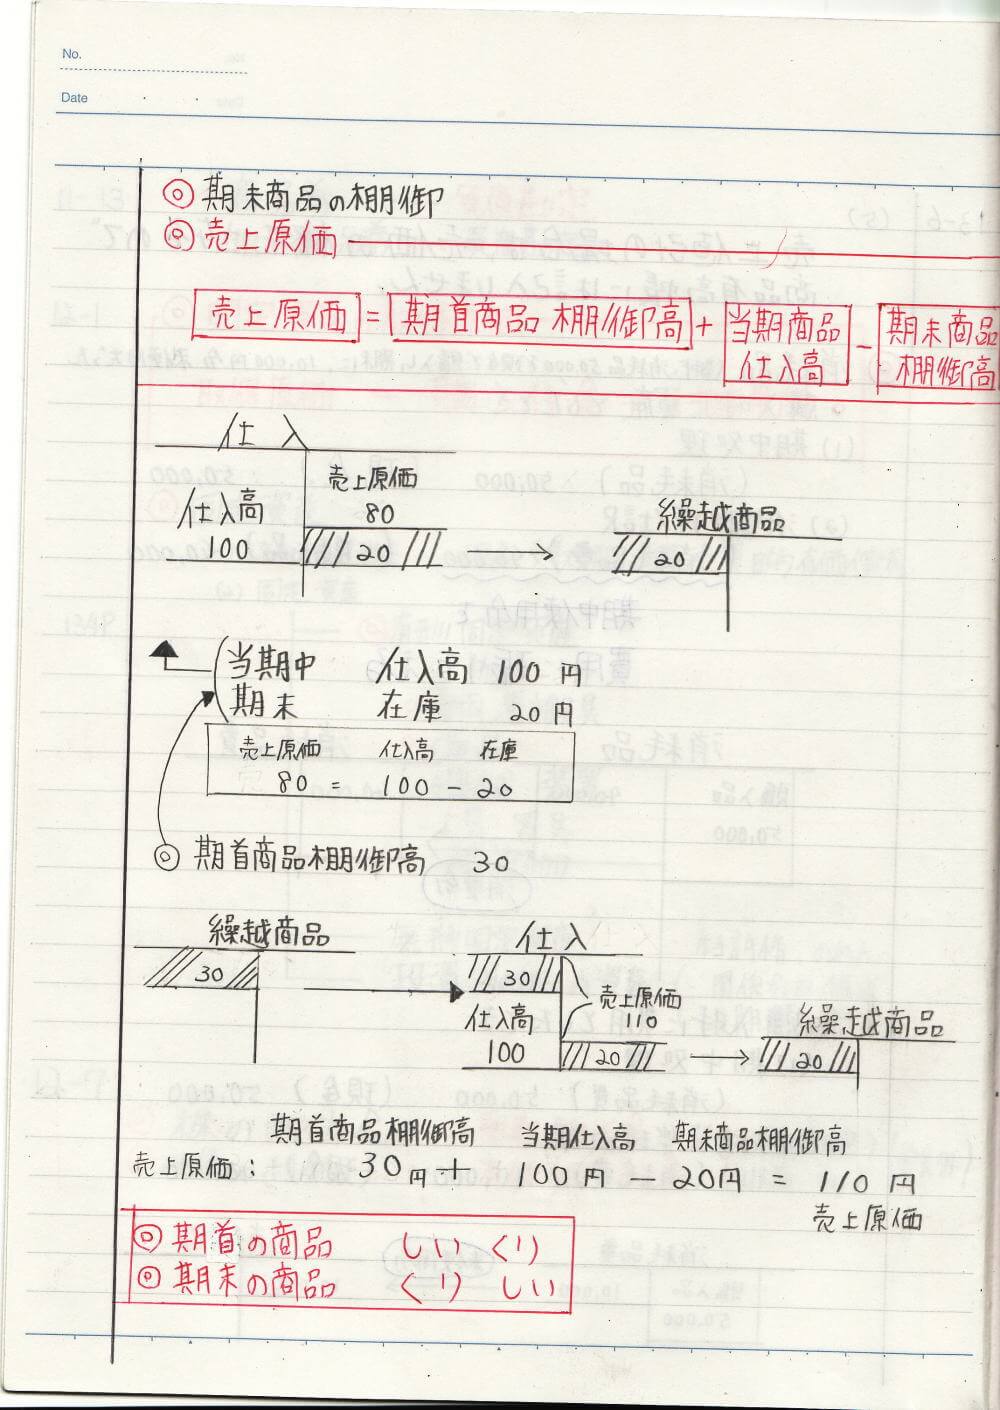 No.
Date
◎ 期末商品の棚御
◎ 売上原価
売上原価 = 期首商品 棚御高 + 当期商品仕入高 − 期末商品棚御高
仕入
売上原価
仕入高 80
100 20 → 20
繰越商品
当期中 仕入高 100 円
期末 在庫 20円
売上原価 仕入高 在庫
80 = 100 − 20
◎ 期首商品棚御高 30
繰越商品 仕入
30 → 30
売上原価
仕入高 110 繰越商品
100 20 → 20
期首商品棚御高 当期仕入高 期末商品棚御高
売上原価: 30円 + 100円 − 20円 = 110円
売上原価
◎ 期首の商品 しい くり
◎ 期末の商品 くり しい